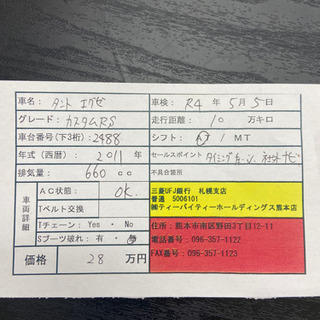 車名: タント エグゼ 車検: R4 年 5 月 5 日
グレード: カスタムRS 走行距離: 10 万キロ
車台番号(下3桁): 2488 シフト: AT / MT
年式(西暦): 2011 セールスポイント タイミングチェーン、社外ナビ
排気量: 660 cc ※不具合箇所
車両詳細
AC状態: OK.
Tベルト交換
Tチェーン: Yes ・ No
Sブーツ破れ: 有 ・ 無
価格 28 万円
三菱UFJ銀行 札幌支店
普通 5006101
㈱ティーバイティーホールディングス熊本店
住所:熊本市南区野田3丁目12-11
電話番号:096-357-1122
FAX番号:096-357-1123